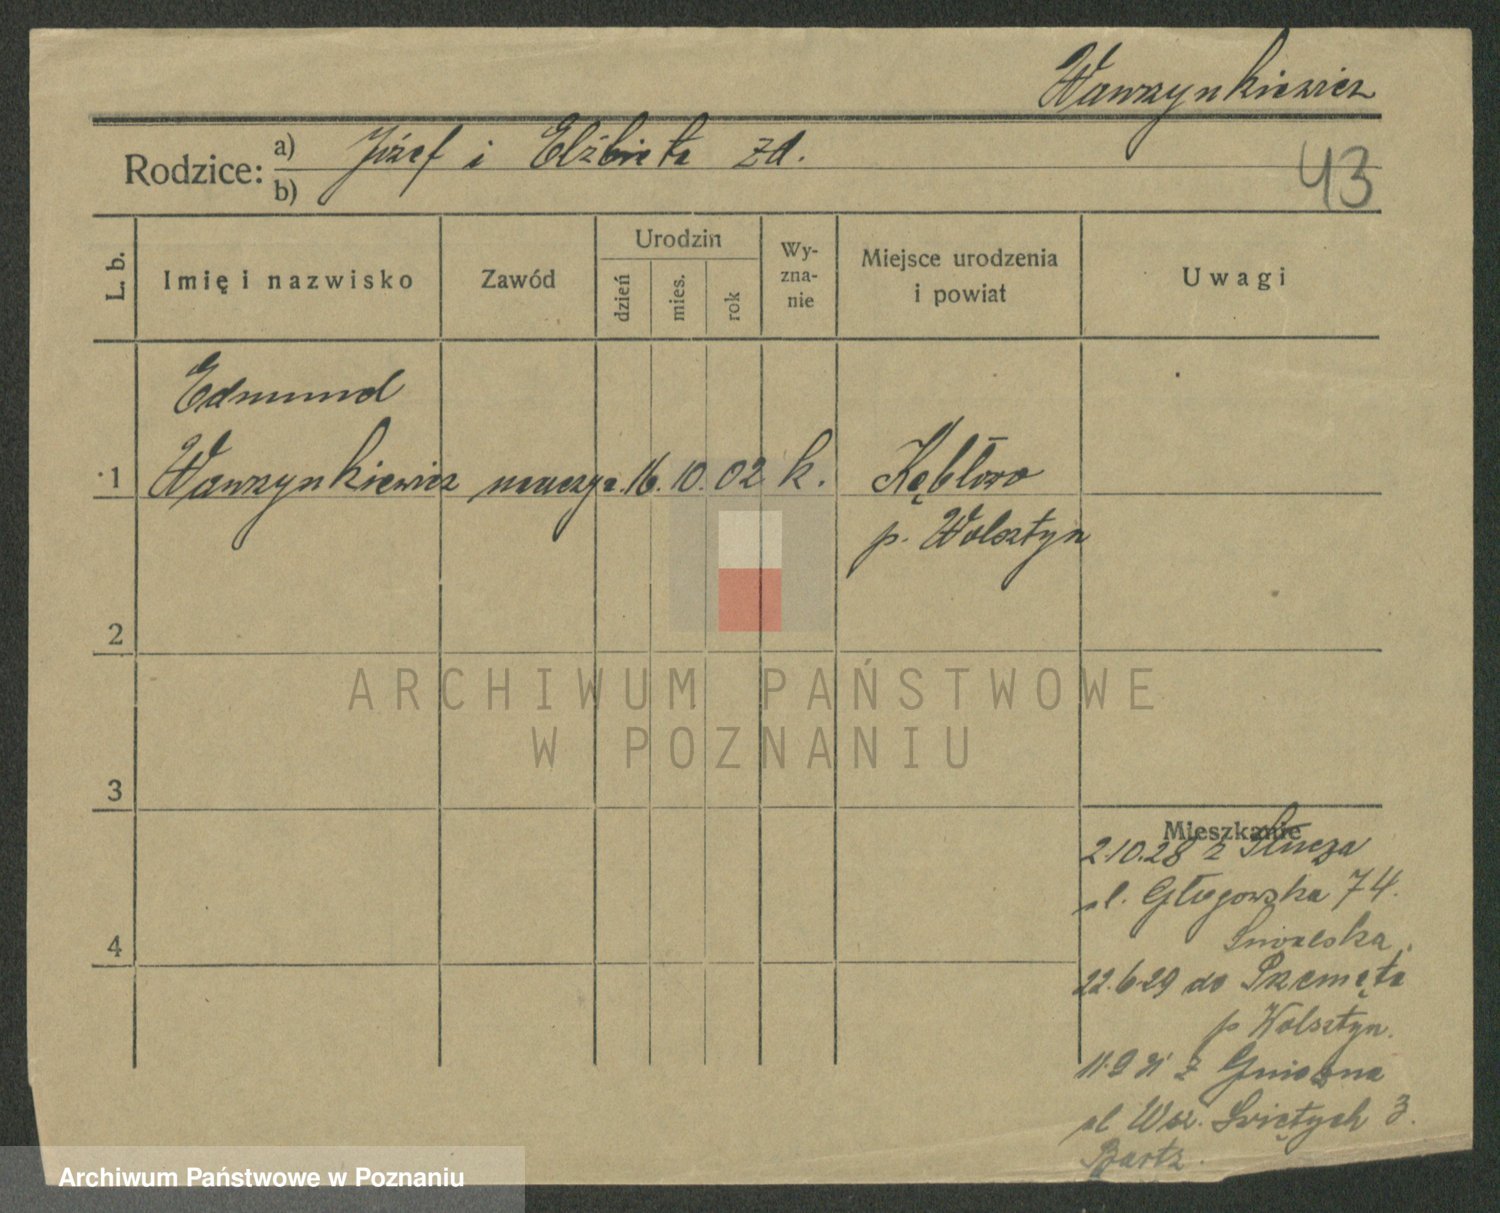 Wawrzynkiewicz
Rodzice: a) Józef i Elżbieta zd.
b)
43
L. b.
Imię i nazwisko
Zawód
Urodzin
dzień
mies.
rok
Wy-
zna-
nie
Miejsce urodzenia
i powiat
Uwagi
Edmund
1 Wawrzynkiewicz nauczyc. 16. 10. 02 k. Kębłowo
p. Wolsztyn
2
ARCHIWUM PAŃSTWOWE
W POZNANIU
3
Mieszkanie
2.10.28 z
ul. Głogowska 74.
4
22.6.29 do Przemęta
p Wolsztyn.
11.9 31 z Gniezna
ul Wsz. Świętych 3.
Archiwum Państwowe w Poznaniu